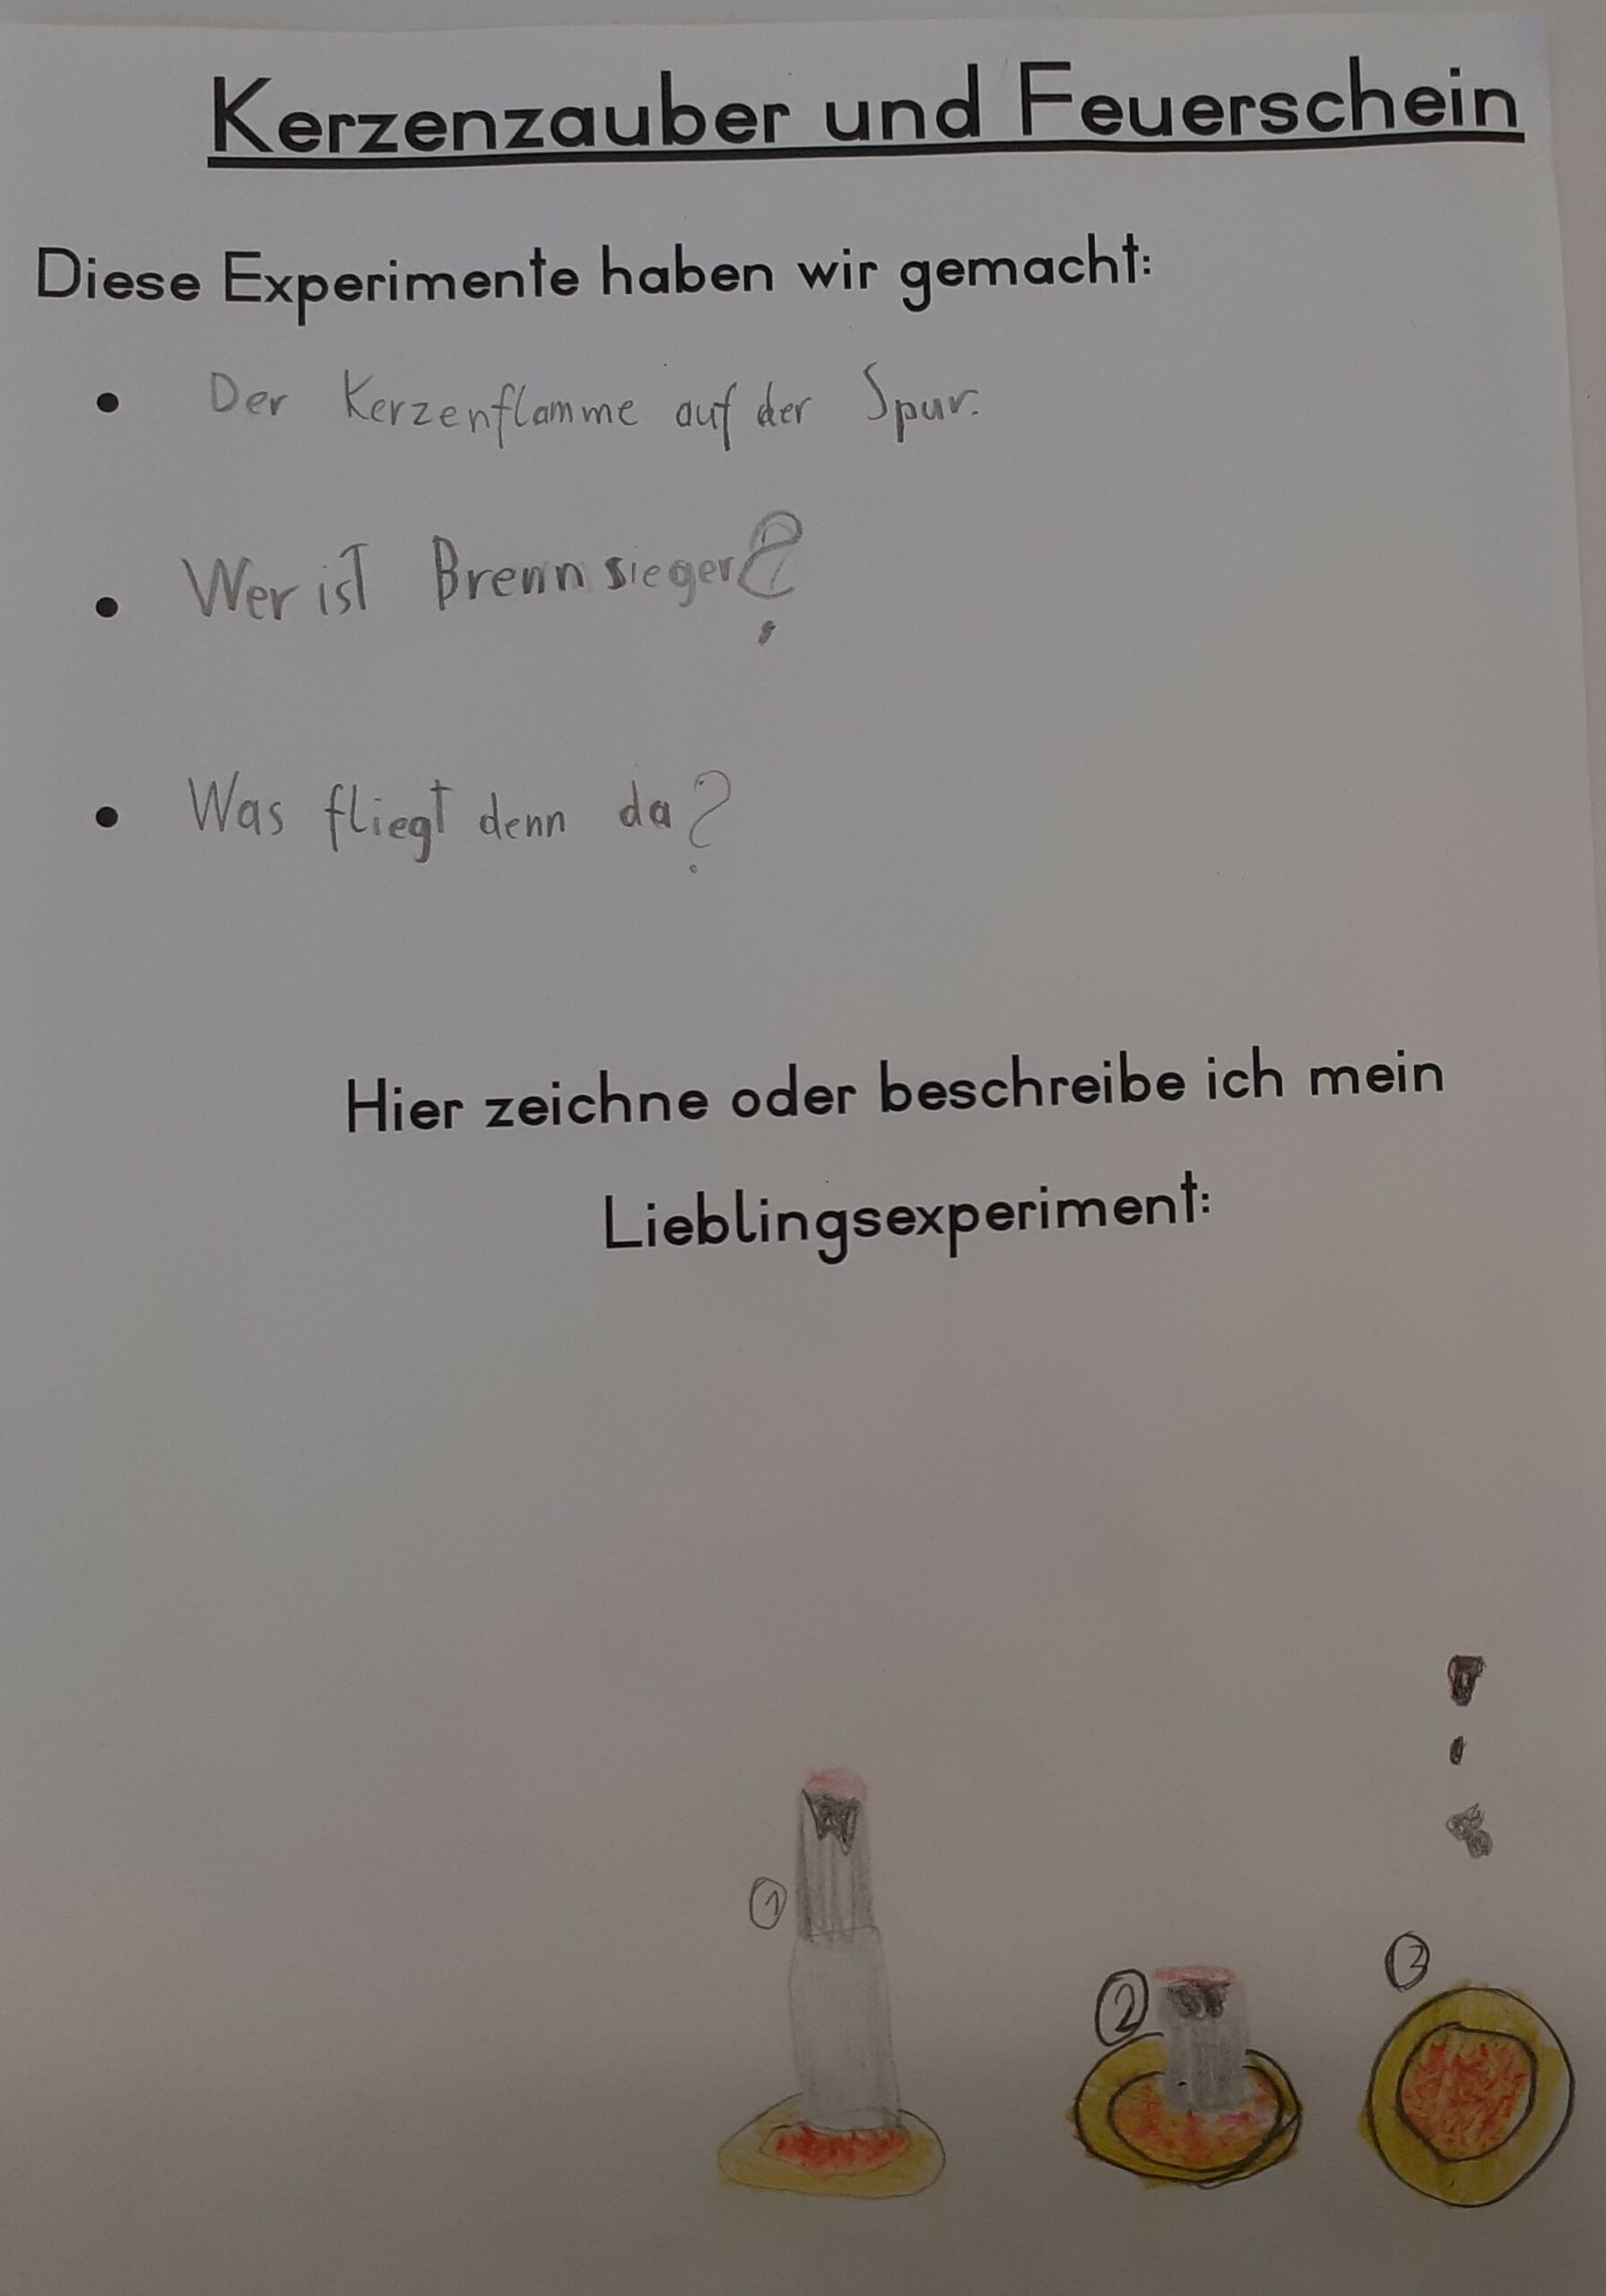 Kerzenzauber und Feuerschein
Diese Experimente haben wir gemacht:
• Der Kerzenflamme auf der Spur.
• Wer ist Brennsieger?
• Was fliegt denn da?
Hier zeichne oder beschreibe ich mein
Lieblingsexperiment:
1
2
3